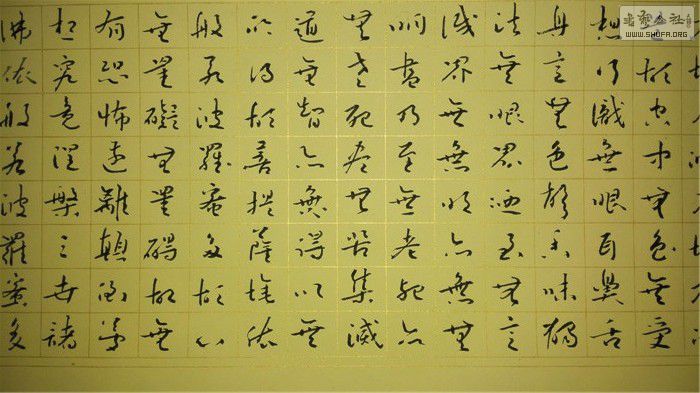 故空中無色無受
想行識無眼耳鼻舌
身意無色聲香味觸
法無眼界乃至無意
識界無無明亦無無
明盡乃至無老死亦
無老死盡無苦集滅
道無智亦無得以無
所得故菩提薩埵依
般若波羅蜜多故心
無罣礙無罣礙故無
有恐怖遠離顛倒夢
想究竟涅槃三世諸
佛依般若波羅蜜多
WWW.SHUFA.ORG